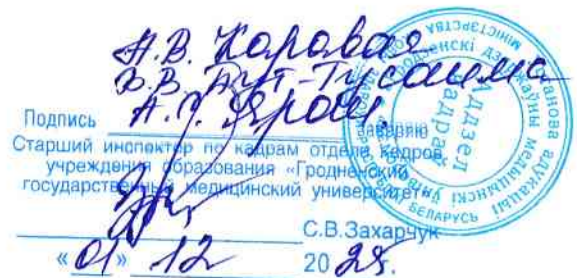 Н.В. Коровая
В.В. Гут-Тусаима
А.О. Ярош.
Подпись
заверяю
Старший инспектор по кадрам отдела кадров
учреждения образования «Гродненский
государственный медицинский университет»
С.В.Захарчук
«01» 12 2025.
Аддзел
кадраў
БЕЛАРУСЬ